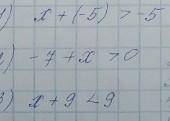 1) x + (-5) > -5
2) -7 + x > 0
3) x + 9 < 9